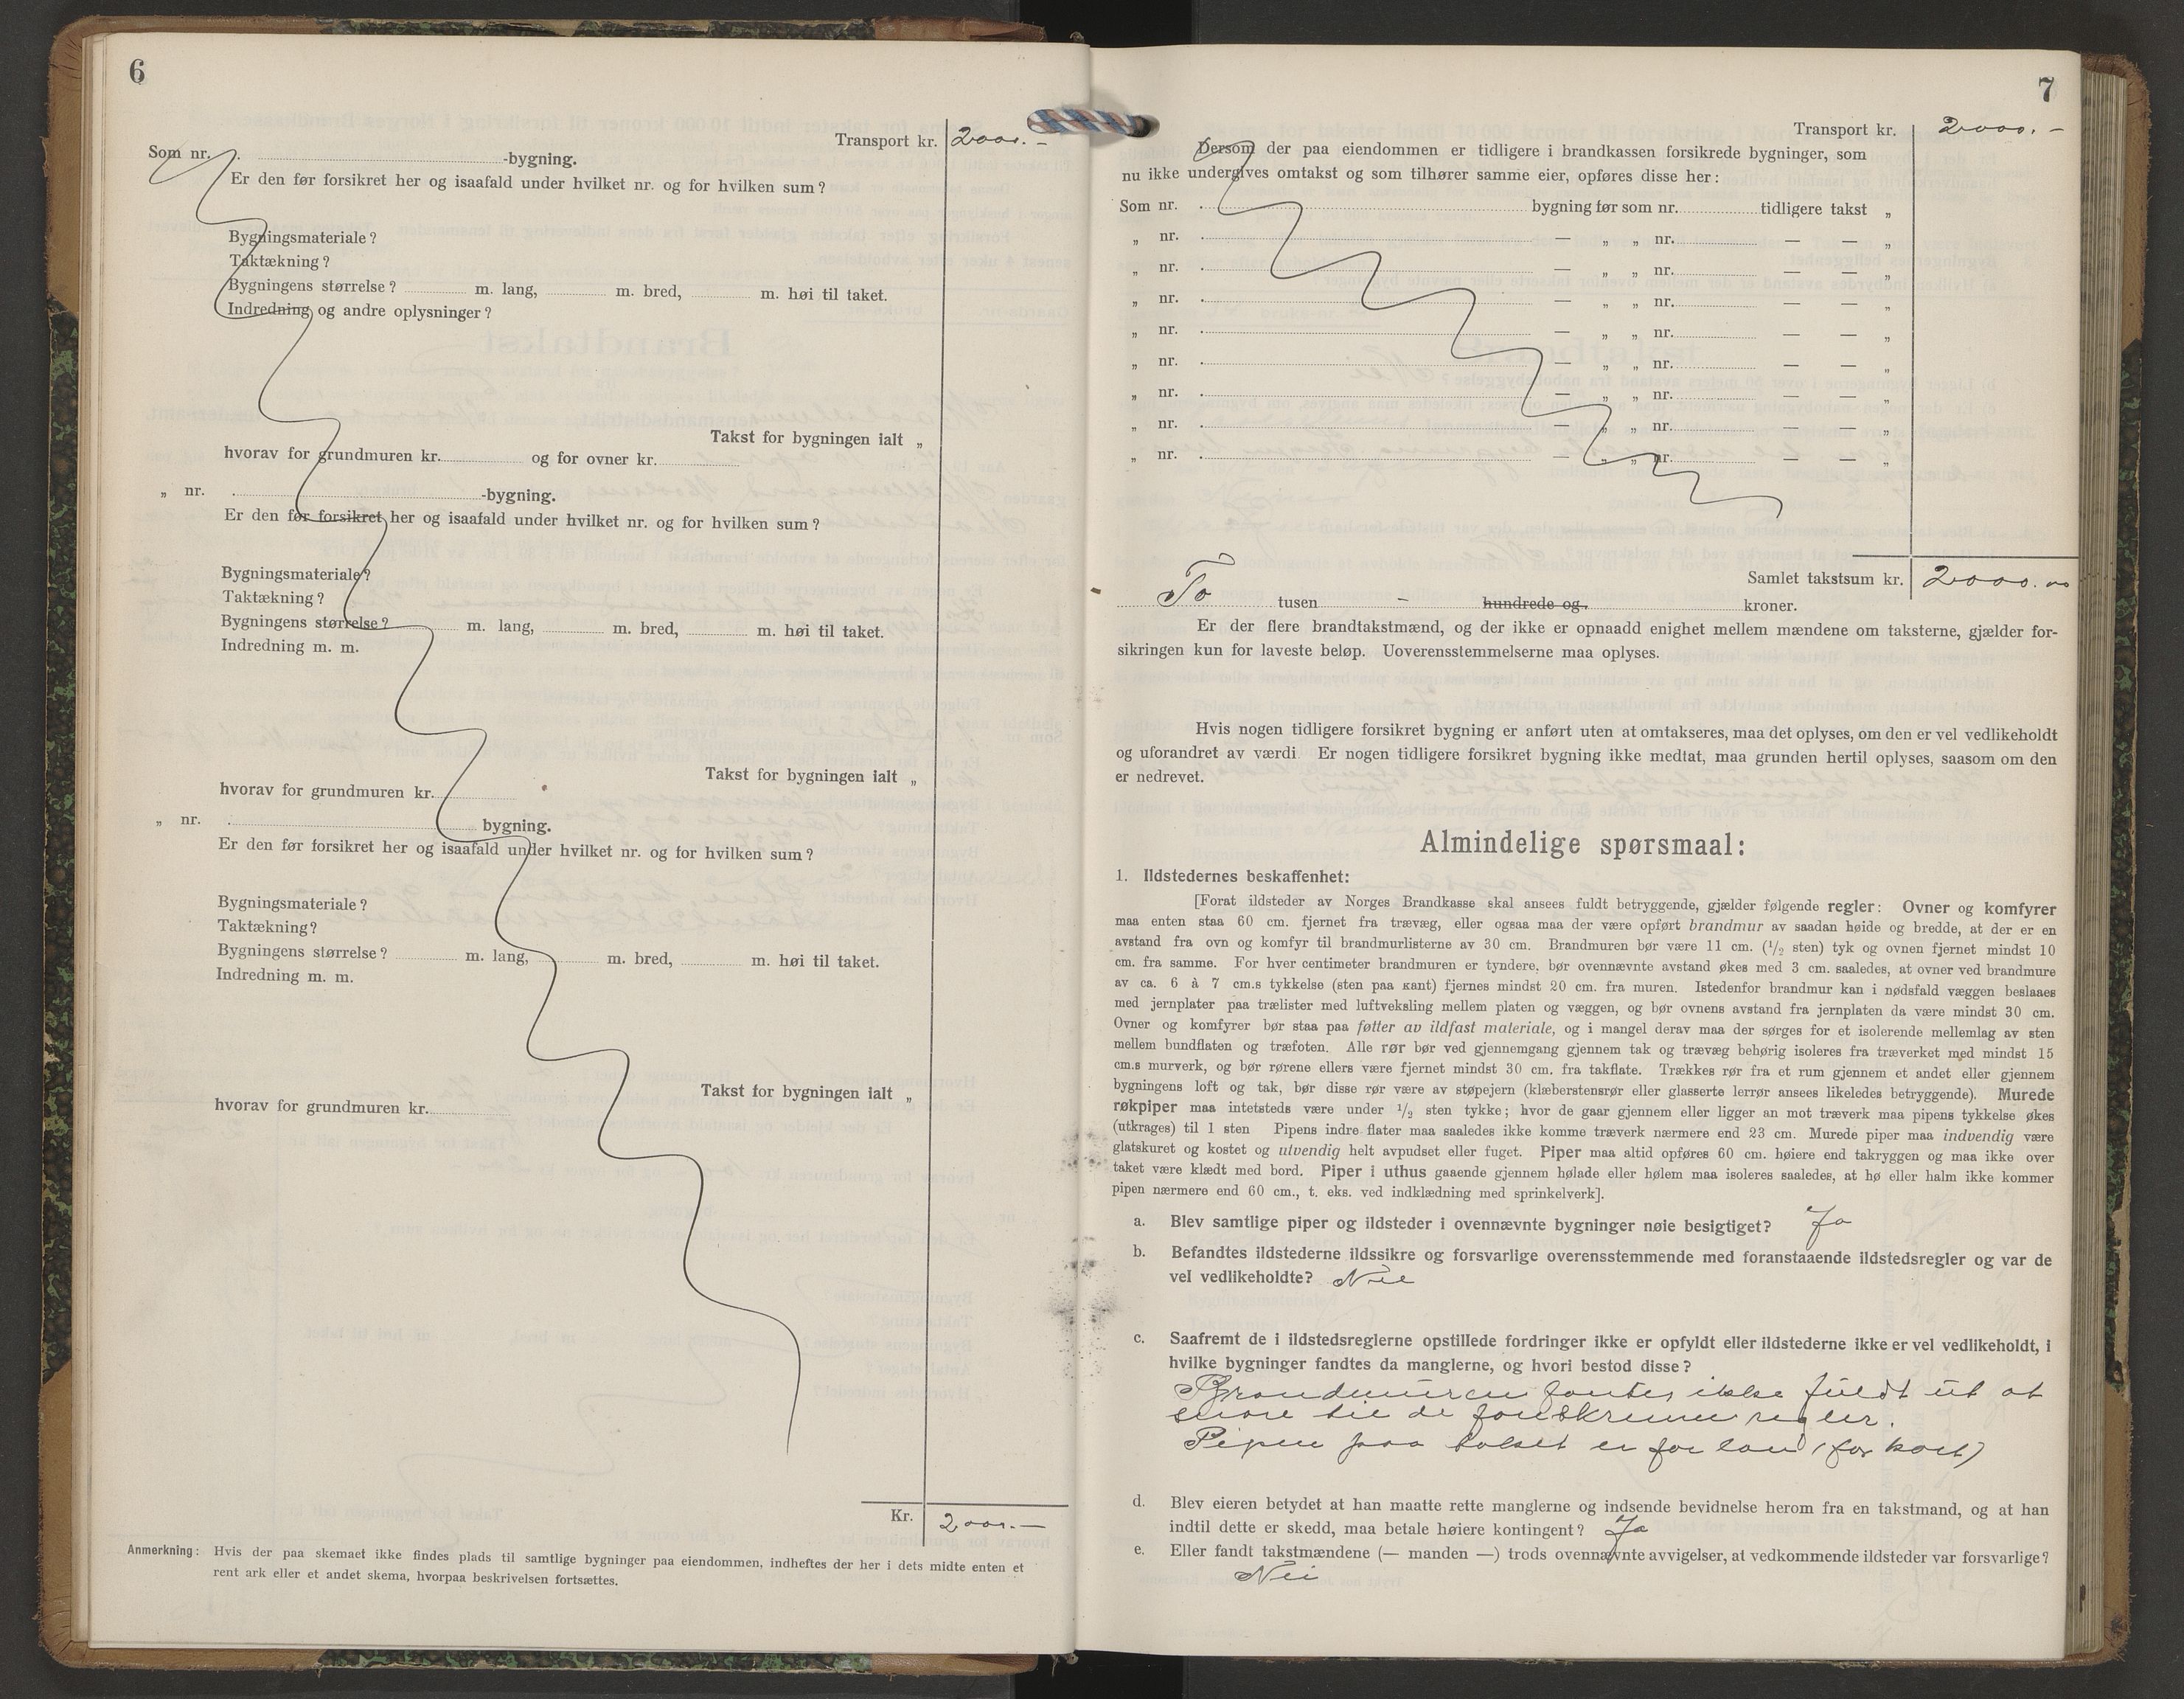 6
Transport kr. 2000.–
Som nr. -bygning.
Er den før forsikret her og isaafald under hvilket nr. og for hvilken sum?
Bygningsmateriale?
Taktækning?
Bygningens størrelse? m. lang, m. bred, m. høi til taket.
Indredning og andre oplysninger?
Takst for bygningen ialt „
hvorav for grundmuren kr. og for ovner kr.
„ nr. -bygning.
Er den før forsikret her og isaafald under hvilket nr. og for hvilken sum?
Bygningsmateriale?
Taktækning?
Bygningens størrelse? m. lang, m. bred, m. høi til taket.
Indredning m. m.
Takst for bygningen ialt „
hvorav for grundmuren kr.
„ nr. bygning.
Er den før forsikret her og isaafald under hvilket nr. og for hvilken sum?
Bygningsmateriale?
Taktækning?
Bygningens størrelse? m. lang, m. bred, m. høi til taket.
Indredning m. m.
Takst for bygningen ialt „
hvorav for grundmuren kr.
Kr. 2000.–
Anmerkning: Hvis der paa skemaet ikke findes plads til samtlige bygninger paa eiendommen, indheftes der her i dets midte enten et
rent ark eller et andet skema, hvorpaa beskrivelsen fortsættes.
7
Transport kr. 2000.–
Dersom der paa eiendommen er tidligere i brandkassen forsikrede bygninger, som
nu ikke undergives omtakst og som tilhører samme eier, opføres disse her:
Som nr. bygning før som nr. tidligere takst „
„ nr. — „ „ nr. — — „
„ nr. — „ „ nr. — — „
„ nr. — „ „ nr. — — „
„ nr. — „ „ nr. — — „
„ nr. — „ „ nr. — — „
„ nr. — „ „ nr. — — „
„ nr. — „ „ nr. — — „
„ nr. — „ „ nr. — — „
Samlet takstsum kr. 2000.00
To tusen – hundrede og kroner.
Er der flere brandtakstmænd, og der ikke er opnaadd enighet mellem mændene om taksterne, gjælder for-
sikringen kun for laveste beløp. Uoverensstemmelserne maa oplyses.
Hvis nogen tidligere forsikret bygning er anført uten at omtakseres, maa det oplyses, om den er vel vedlikeholdt
og uforandret av værdi Er nogen tidligere forsikret bygning ikke medtat, maa grunden hertil oplyses, saasom om den
er nedrevet.
Almindelige spørsmaal:
1. Ildstedernes beskaffenhet:
[Forat ildsteder av Norges Brandkasse skal ansees fuldt betryggende, gjælder følgende regler: Ovner og komfyrer
maa enten staa 60 cm. fjernet fra trævæg, eller ogsaa maa der være opført brandmur av saadan høide og bredde, at der er en
avstand fra ovn og komfyr til brandmurlisterne av 30 cm. Brandmuren bør være 11 cm. (1/2 sten) tyk og ovnen fjernet mindst 10
cm. fra samme. For hver centimeter brandmuren er tyndere, bør ovennævnte avstand økes med 3 cm. saaledes, at ovner ved brandmure
av ca. 6 à 7 cm.s tykkelse (sten paa kant) fjernes mindst 20 cm. fra muren. Istedenfor brandmur kan i nødsfald væggen beslaaes
med jernplater paa trælister med luftveksling mellem platen og væggen, og bør ovnens avstand fra jernplaten da være mindst 30 cm.
Ovner og komfyrer bør staa paa føtter av ildfast materiale, og i mangel derav maa der sørges for et isolerende mellemlag av sten
mellem bundflaten og træfoten. Alle rør bør ved gjennemgang gjennem tak og trævæg behørig isoleres fra træverket med mindst 15
cm.s murverk, og bør rørene ellers være fjernet mindst 30 cm. fra takflate. Trækkes rør fra et rum gjennem et andet eller gjennem
bygningens loft og tak, bør disse rør være av støpejern (klæberstensrør eller glasserte lerrør ansees likeledes betryggende). Murede
røkpiper maa intetsteds være under 1/2 sten tykke; hvor de gaar gjennem eller ligger an mot træverk maa pipens tykkelse økes
(utkrages) til 1 sten Pipens indre flater maa saaledes ikke komme træverk nærmere end 23 cm. Murede piper maa indvendig være
glatskuret og kostet og utvendig helt avpudset eller fuget. Piper maa altid opføres 60 cm. høiere end takryggen og maa ikke over
taket være klædt med bord. Piper i uthus gaaende gjennem hølade eller hølem maa isoleres saaledes, at hø eller halm ikke kommer
pipen nærmere end 60 cm., t. eks. ved indklædning med sprinkelverk].
a. Blev samtlige piper og ildsteder i ovennævnte bygninger nøie besigtiget? Ja
b. Befandtes ildstederne ildssikre og forsvarlige overensstemmende med foranstaaende ildstedsregler og var de
vel vedlikeholdte? Nei
c. Saafremt de i ildstedsreglerne opstillede fordringer ikke er opfyldt eller ildstederne ikke er vel vedlikeholdt, i
hvilke bygninger fandtes da manglerne, og hvori bestod disse?
Brandmuren fantes ikke fuldt ut at
svare til de forskrevne regler.
Pipen paa taket er for lav (for kort)
d. Blev eieren betydet at han maatte rette manglerne og indsende bevidnelse herom fra en takstmand, og at han
indtil dette er skedd, maa betale høiere kontingent? Ja
e. Eller fandt takstmændene (— manden —) trods ovennævnte avvigelser, at vedkommende ildsteder var forsvarlige?
Nei